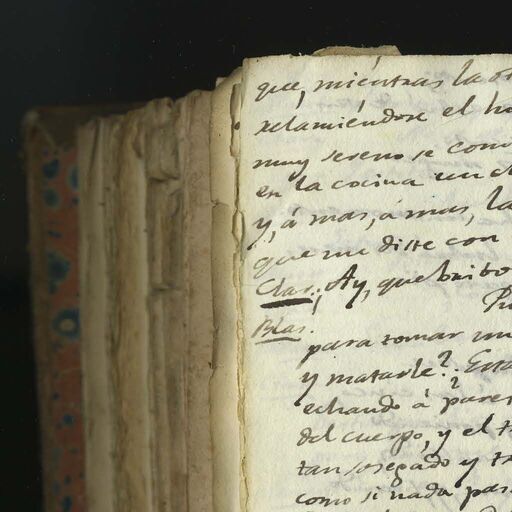 que, miéntras la
relamiéndose el
muy sereno se
en la cocina un
y, á mas, á mas, la
que me diste con
Clar. ¡Ay, que bribo
Blas.
para tomar un
y matarle? Esta
echando á
del cuerpo, y el
tan sosegado y
como si nada